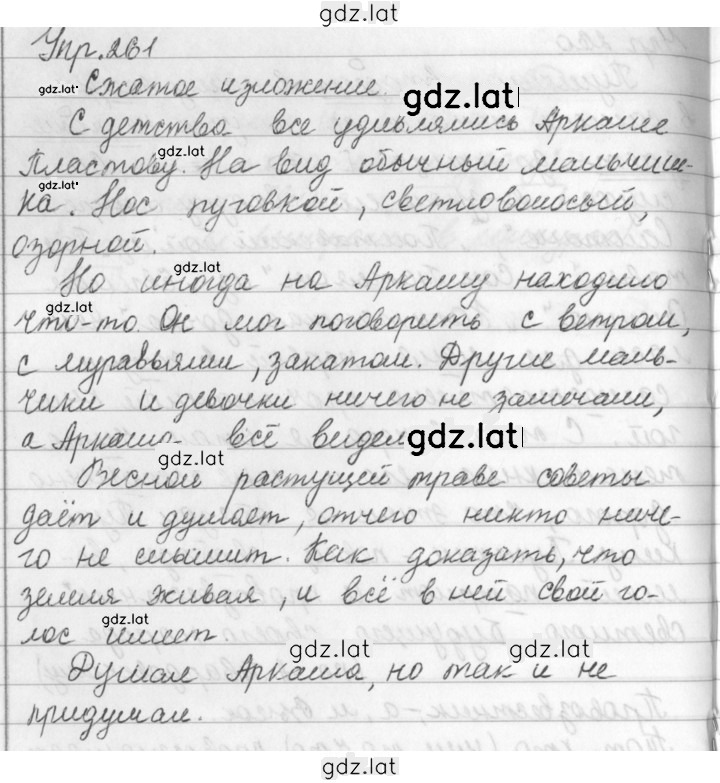 gdz.lat
Упр. 261
gdz.lat Сжатое изложение. gdz.lat
С детства все удивлялись Аркаше
gdz.lat
Пластову. На вид обычный мальчиш-
gdz.lat
ка. Нос пуговкой, светловолосый,
озорной.
gdz.lat
Но иногда на Аркашу находило
gdz.lat
что-то. Он мог поговорить с ветром,
с муравьями, закатом. Другие маль-
чики и девочки ничего не замечали,
а Аркаша всё видел gdz.lat
gdz.lat
Весной растущей траве советы
даёт и думает, отчего никто ниче-
го не слышит. Как доказать, что
земля живая, и всё в ней свой го-
лос имеет
gdz.lat gdz.lat gdz.lat
Думал Аркаша, но так и не
придумал.
gdz.lat